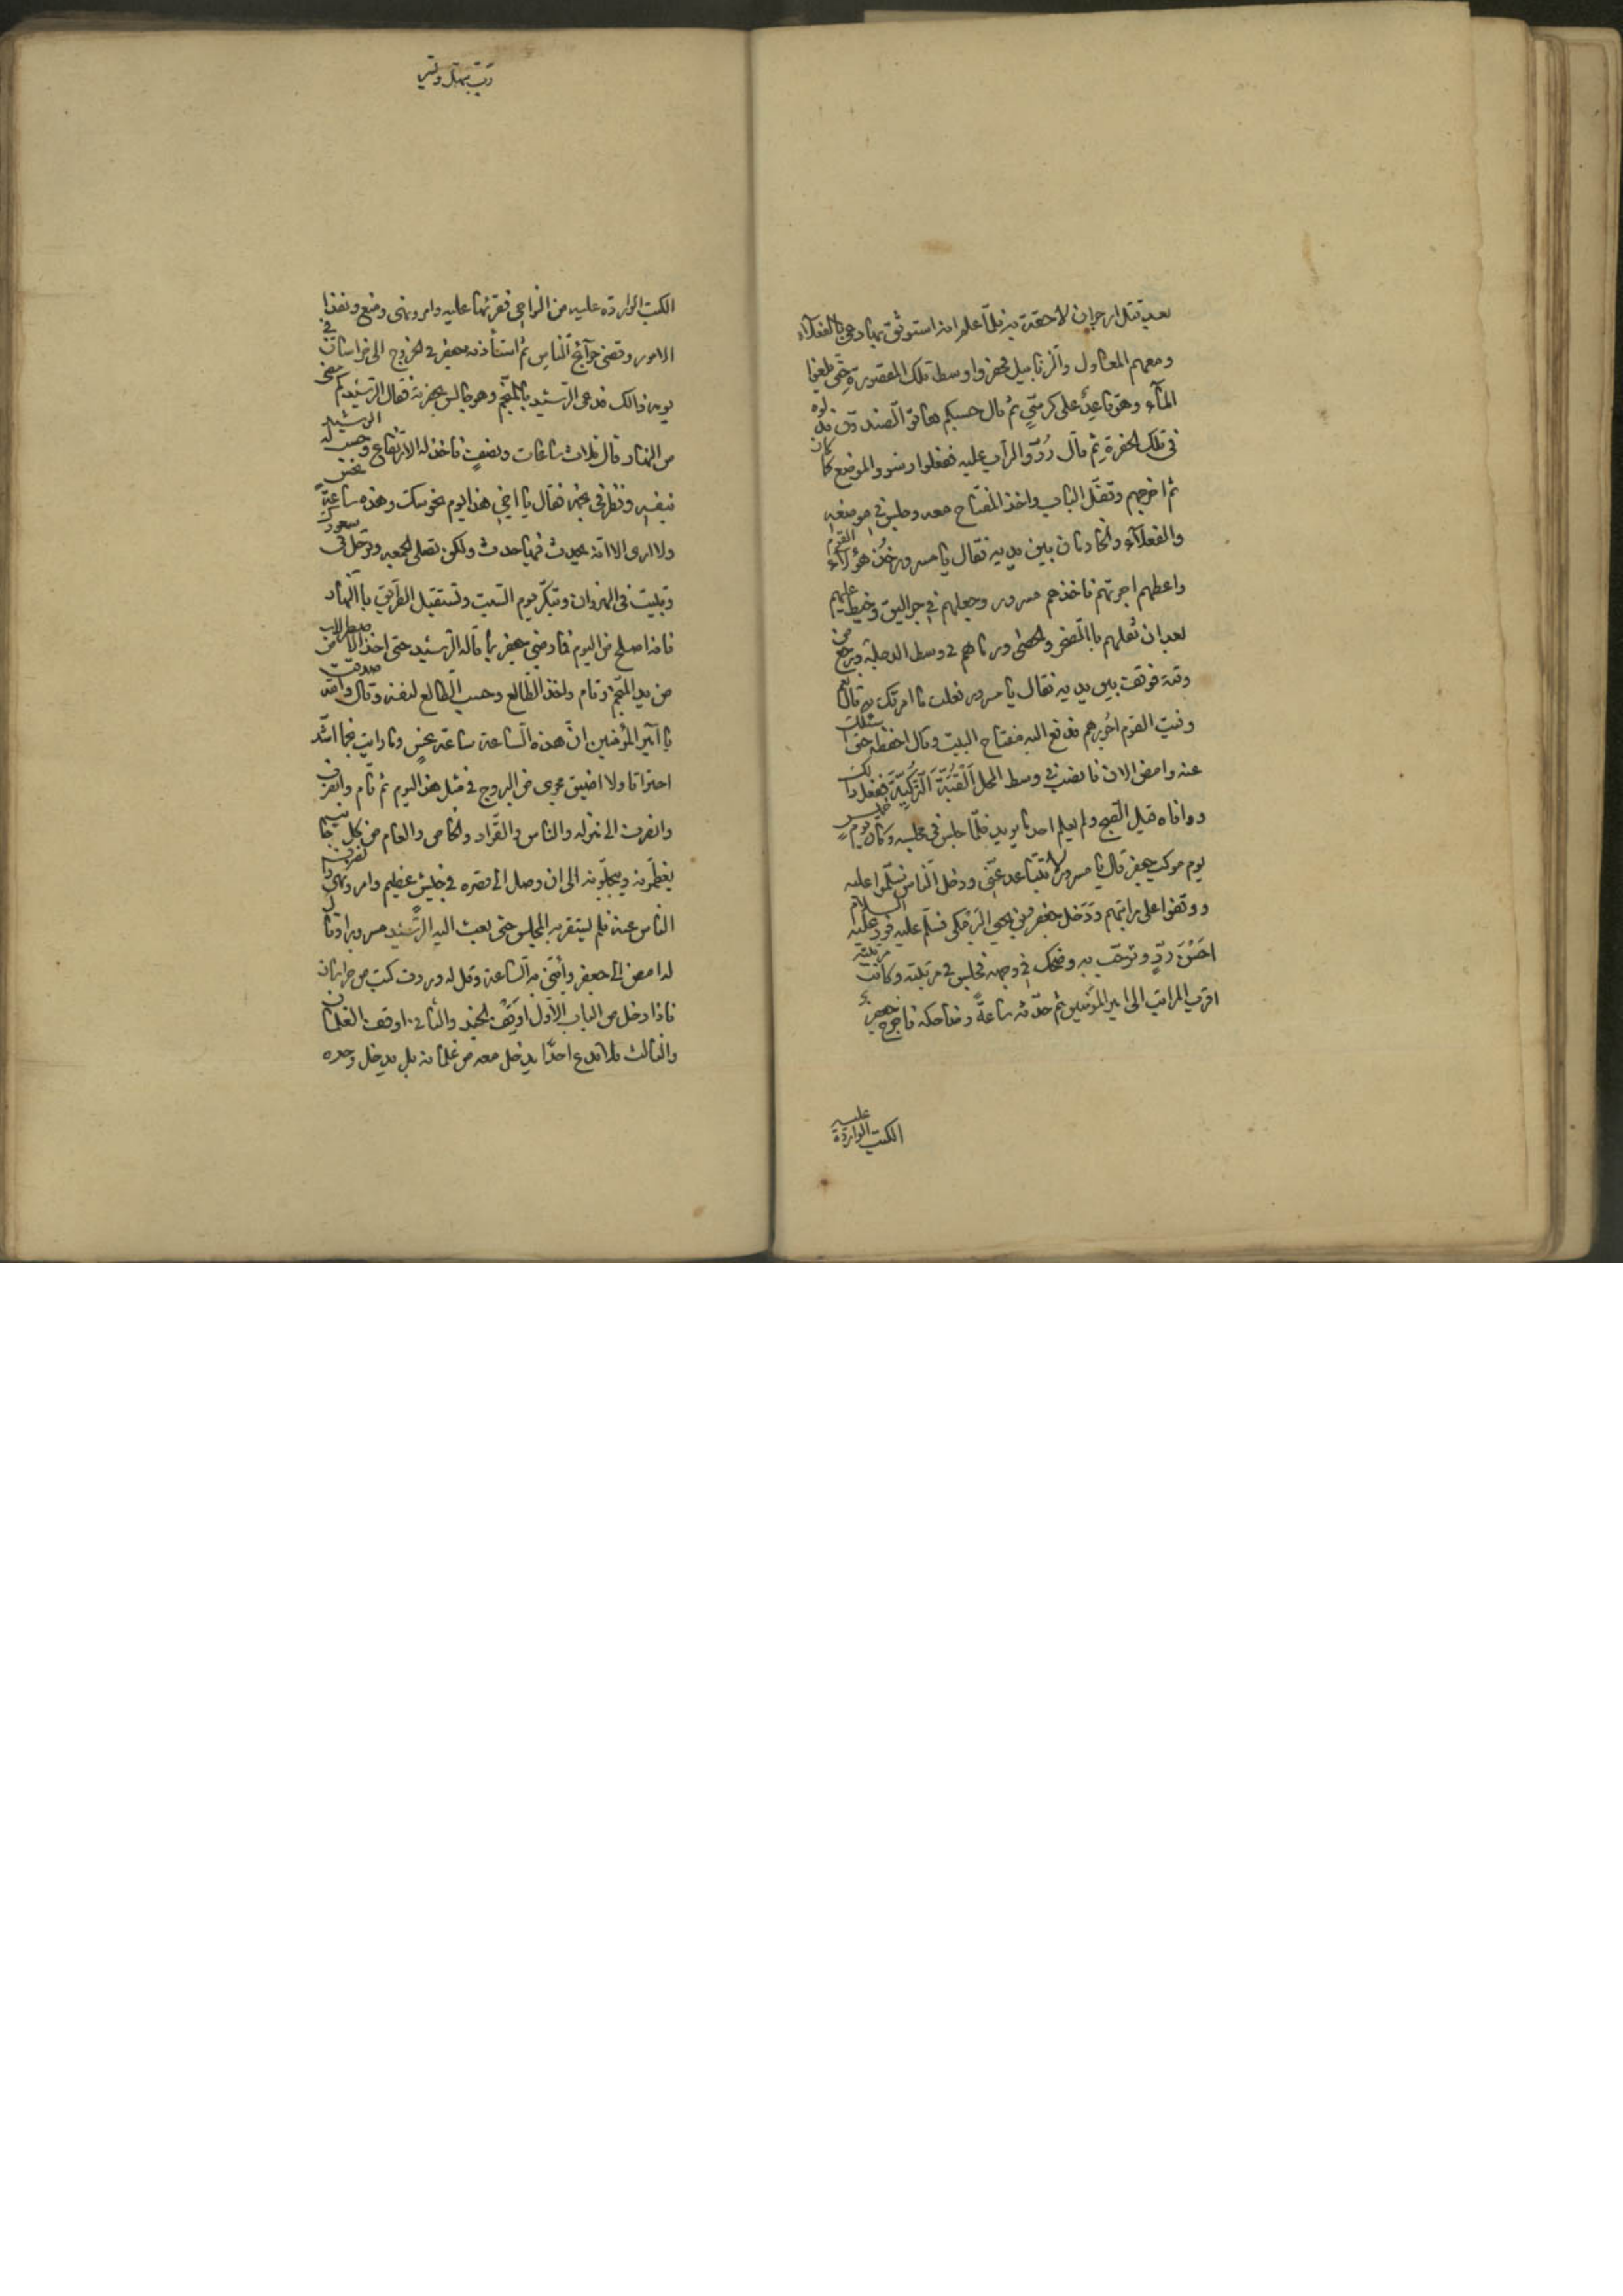 بعد قتل ارجوان لاحقة به فلمّا علم انه استوثق بها دعى بالفعلآء
ومعهم المعاول والزنابيل فحفروا وسط تلك المقصورة حتى بلغوا
المآء وهو قاعدٌ على كرسيّ ثم قال حسبكم هاتوا الصندوق فدلوه
في تلك الحفرة ثم قال رُدّوا التراب عليه ففعلوا وسووا الموضع كما كان
ثم اخرجهم وقفّل الباب واخذ المفتاح معه وجلس في موضعه
والفعلآء والخادمان بين يديه فقال يا مسرور خُذ هؤلآء القوم
واعطهم اجرتهم فاخذهم مسرور وجعلهم في جواليق وخيط عليهم
بعد ان ثقلهم باالصخر والحصى ورماهم في وسط الدجلة ورجع من
وقته فوقف بين يديه فقال يا مسرور فعلت ما امرتك به قال نعم
وفيت القوم اجورهم فدفع اليه مفتاح البيت وقال احفظه حتى اسئلك
عنه وامض الان فانصب في وسط المحل القُبّة التُركيّة ففعل ذلك
ووافاه قبل الصبح ولم يعلم احد ما يريد فلمّا جلس في مجلسه وكان يوم خميس
يوم موكب جعفر قال يا مسرور لا تتباعد عنّي ودخل الناس فسلّموا عليه
ووقفوا على مراتبهم ودخل جعفر بن يحيى البرمكي فسلّم عليه فرد عليه السلام
احسن ردٍّ وترحّب به وضحك في وجهه فجلس في مرتبته وكانت مرتبته
اقرب المراتب الى امير المؤمنين ثم حدّثه ساعةً وضاحكه فاخرج جعفر
الكتب الواردة عليه
الكتب الواردة عليه من النواحي فقرئها عليه وامر ونهى ومنع ونفذ
الامور وقضى حوآئج الناس ثم استأذنه جعفر في الخروج الى خراسان في
يومه ذالك فدعى الرشيد باالمنجّم وهو جالس بحضرته فقال الرشيد كم مضى
من النهار قال ثلاث ساعات ونصفٍ فاخذ له الارتفاع وحسب له الرشيد
بنفسه ونظر في نجمه فقال يا اخي هذا يوم نحوسك وهذه ساعة نحسٍ
ولا ارى الا انه يحدث فيها حدث ولكن تصلى الجمعه وترحل في سعودك
وتبيت في النهروان وتبكّر يوم السبت وتستقبل الطريق باالنهار
فانه اصلح من اليوم فما رضى جعفر بما قاله الرشيد حتى اخذ الاصطرلاب
من يد المنجّم وقام واخذ الطالع وحسب الطالع لنفسه وقال والله صدقت
يا امير المؤمنين انّ هذه الساعة ساعة نحسٍ وما رايت نجما اشد
احتراقا ولا اضيق مجرى من البروج في مثل هذا اليوم ثم قام وانصرف
وانصرف الى منزله والناس والقوّاد والخاص والعام من كل جانبٍ
يعظّمونه ويبجّلونه الى ان وصل الى قصره في جيشٍ عظيم وامر ونهى
الناس عنه فلم يستقر به المجلس حتى بعث اليه الرشيد مسرورا وقال
له امض الى جعفر وأتنى به الساعة وقل له وردت كتب من خراسان
فاذا دخل من الباب الاول اوقف الجند والثاني اوقف الغلمان
والثالث فلا تدع احدًا يدخل معه من غلمانه بل يدخل وحده